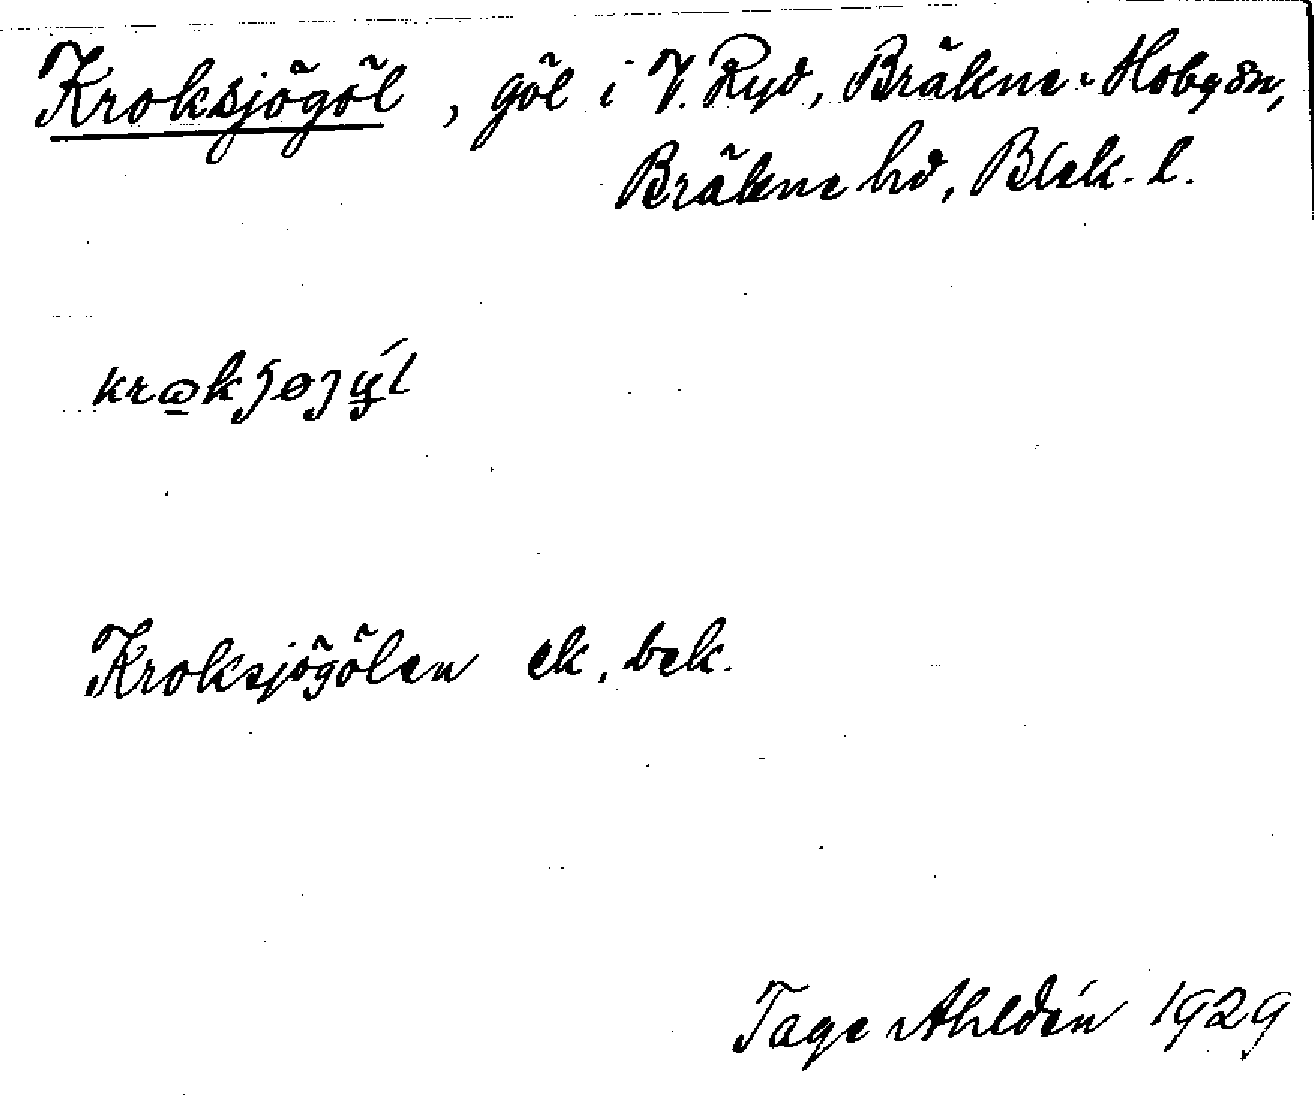 Kroksjögöl, göl i V. Ryd, Bräkne-Hoby sn,
Bräkne hd, Blek. l.
Kroksjögölen ek. bek.
Tage Ahldén 1929